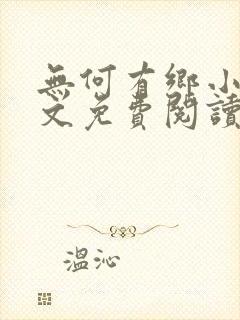 無何有鄉小
文免費閱讀
溫沁